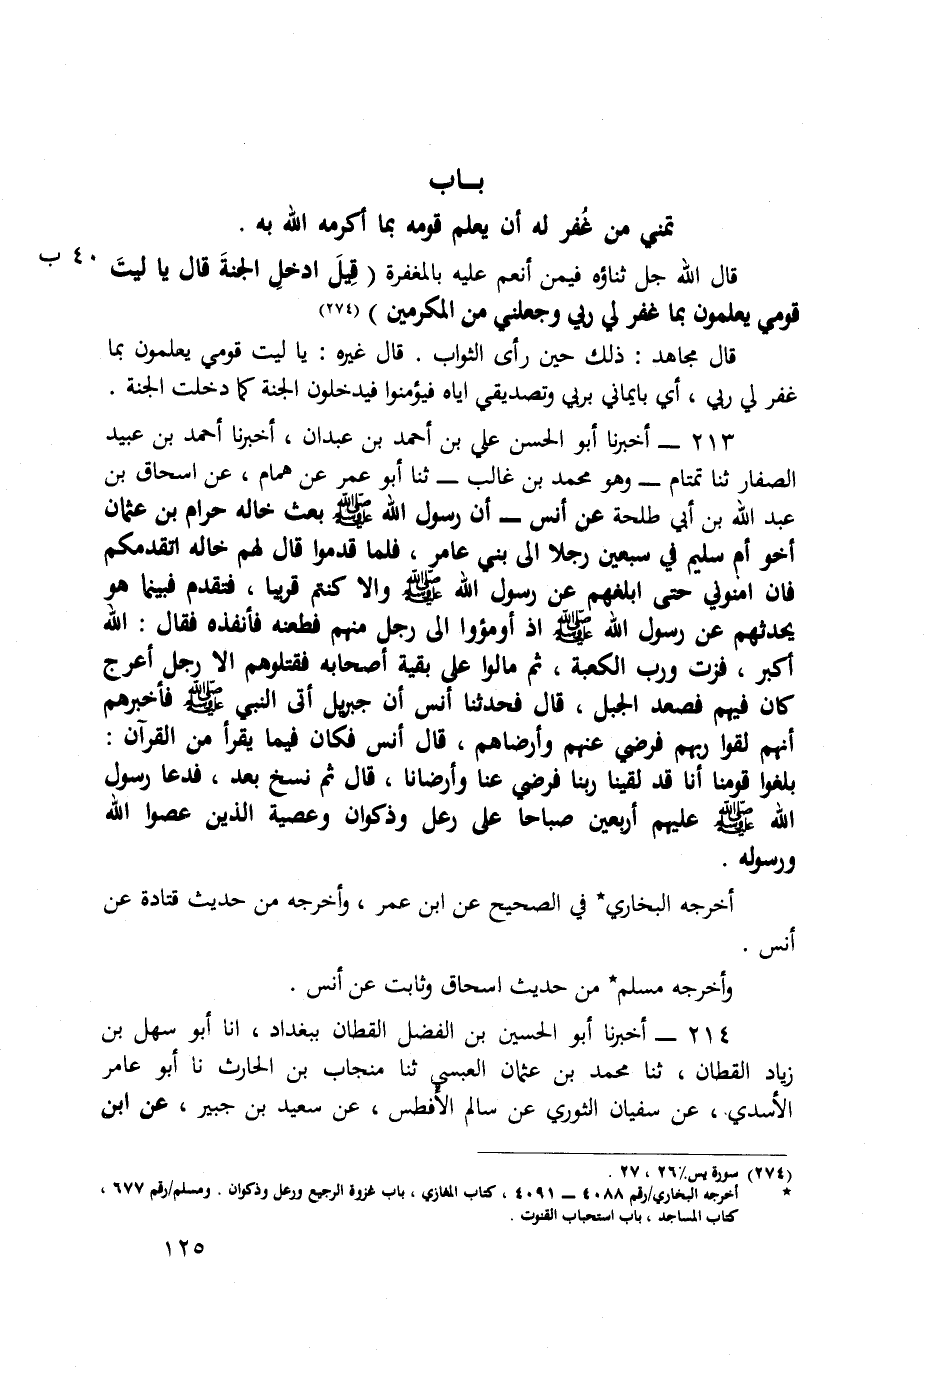 بـــاب
تمني من غُفر له أن يعلم قومه بما أكرمه الله به .
قال الله جل ثناؤه فيمن أنعم عليه بالمغفرة ( قِيلَ ادخلِ الجنةَ قال يا ليتَ
٤٠ ب
قومي يعلمون بما غفر لي ربي وجعلني من المكرمين ) (٢٧٤)
قال مجاهد : ذلك حين رأى الثواب . قال غيره : يا ليت قومي يعلمون بما
غفر لي ربي ، أي بايماني بربي وتصديقي اياه فيؤمنوا فيدخلون الجنة كما دخلت الجنة .
٢١٣ ــ أخبرنا أبو الحسن علي بن أحمد بن عبدان ، أخبرنا أحمد بن عبيد
الصفار ثنا تمتام ــ وهو محمد بن غالب ــ ثنا أبو عمر عن همام ، عن اسحاق بن
عبد الله بن أبي طلحة عن أنس ــ أن رسول الله ﷺ بعث خاله حرام بن عثمان
أخو أم سليم في سبعين رجلا الى بني عامر ، فلما قدموا قال لهم خاله اتقدمكم
فان امنوني حتى ابلغهم عن رسول الله ﷺ والا كنتم قريبا ، فتقدم فبينما هو
يحدثهم عن رسول الله ﷺ اذ أومؤوا الى رجل منهم فطعنه فأنفذه فقال : الله
أكبر ، فزت ورب الكعبة ، ثم مالوا على بقية أصحابه فقتلوهم الا رجل أعرج
كان فيهم فصعد الجبل ، قال فحدثنا أنس أن جبريل أتى النبي ﷺ فأخبرهم
أنهم لقوا ربهم فرضي عنهم وأرضاهم ، قال أنس فكان فيما يقرأ من القرآن :
بلغوا قومنا أنا قد لقينا ربنا فرضي عنا وأرضانا ، قال ثم نسخ بعد ، فدعا رسول
الله ﷺ عليهم أربعين صباحا على رعل وذكوان وعصية الذين عصوا الله
ورسوله .
أخرجه البخاري* في الصحيح عن ابن عمر ، وأخرجه من حديث قتادة عن
أنس .
وأخرجه مسلم* من حديث اسحاق وثابت عن أنس .
٢١٤ ــ أخبرنا أبو الحسين بن الفضل القطان ببغداد ، انا أبو سهل بن
زياد القطان ، ثنا محمد بن عثمان العبسي ثنا منجاب بن الحارث نا أبو عامر
الأسدي ، عن سفيان الثوري عن سالم الأفطس ، عن سعيد بن جبير ، عن ابن
(٢٧٤) سورة يس/٢٦ ، ٢٧ .
* أخرجه البخاري/رقم ٤٠٨٨ ــ ٤٠٩١ ، كتاب المغازي ، باب غزوة الرجيع ورعل وذكوان . ومسلم/رقم ٦٧٧ ،
كتاب المساجد ، باب استحباب القنوت .
١٢٥